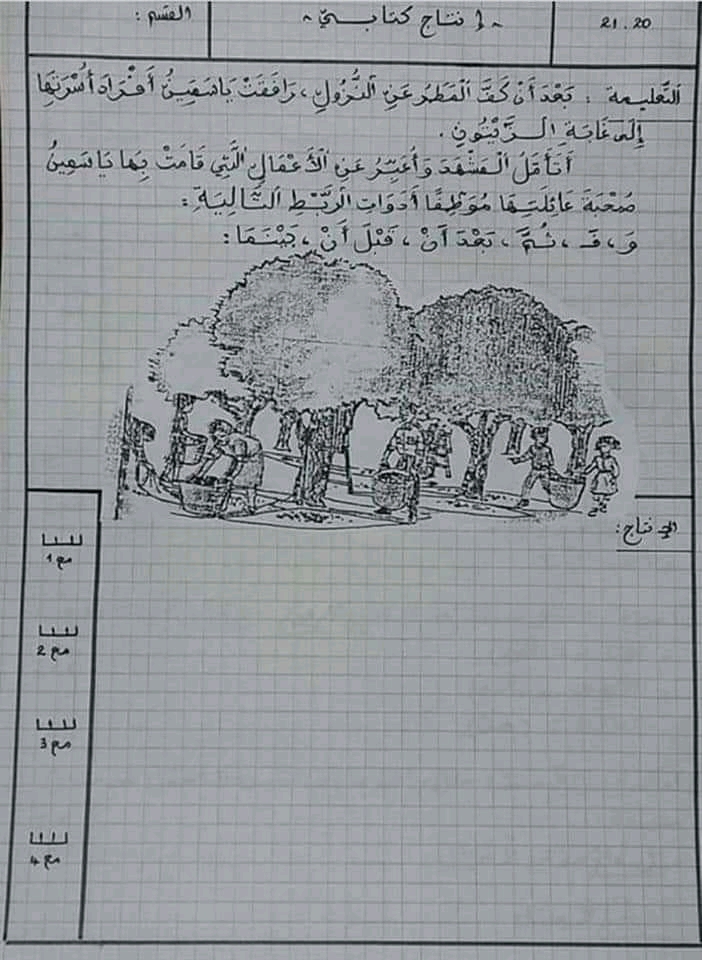 21.20
~ إنتاج كتابيّ ~
القسم :
التّعليمة : بَعْدَ أَنْ كَفَّ المَطَرُ عَنِ النُّزُولِ، رَافَقَتْ يَاسَمِينُ أَفْرَادَ أُسْرَتِهَا
إِلَى غَابَةِ الزَّيْتُونِ .
أَتَأَمَّلُ المَشْهَدَ وَأُعَبِّرُ عَنِ الأَعْمَالِ الَّتِي قَامَتْ بِهَا يَاسَمِينُ
صُحْبَةَ عَائِلَتِهَا مُوَظِّفًا أَدَوَاتِ الرَّبْطِ التَّالِيَةِ :
وَ ، فَـ ، ثُمَّ ، بَعْدَ أَنْ ، قَبْلَ أَنْ ، بَيْنَمَا :
الإنتاج :
مع 1
مع 2
مع 3
مع 4